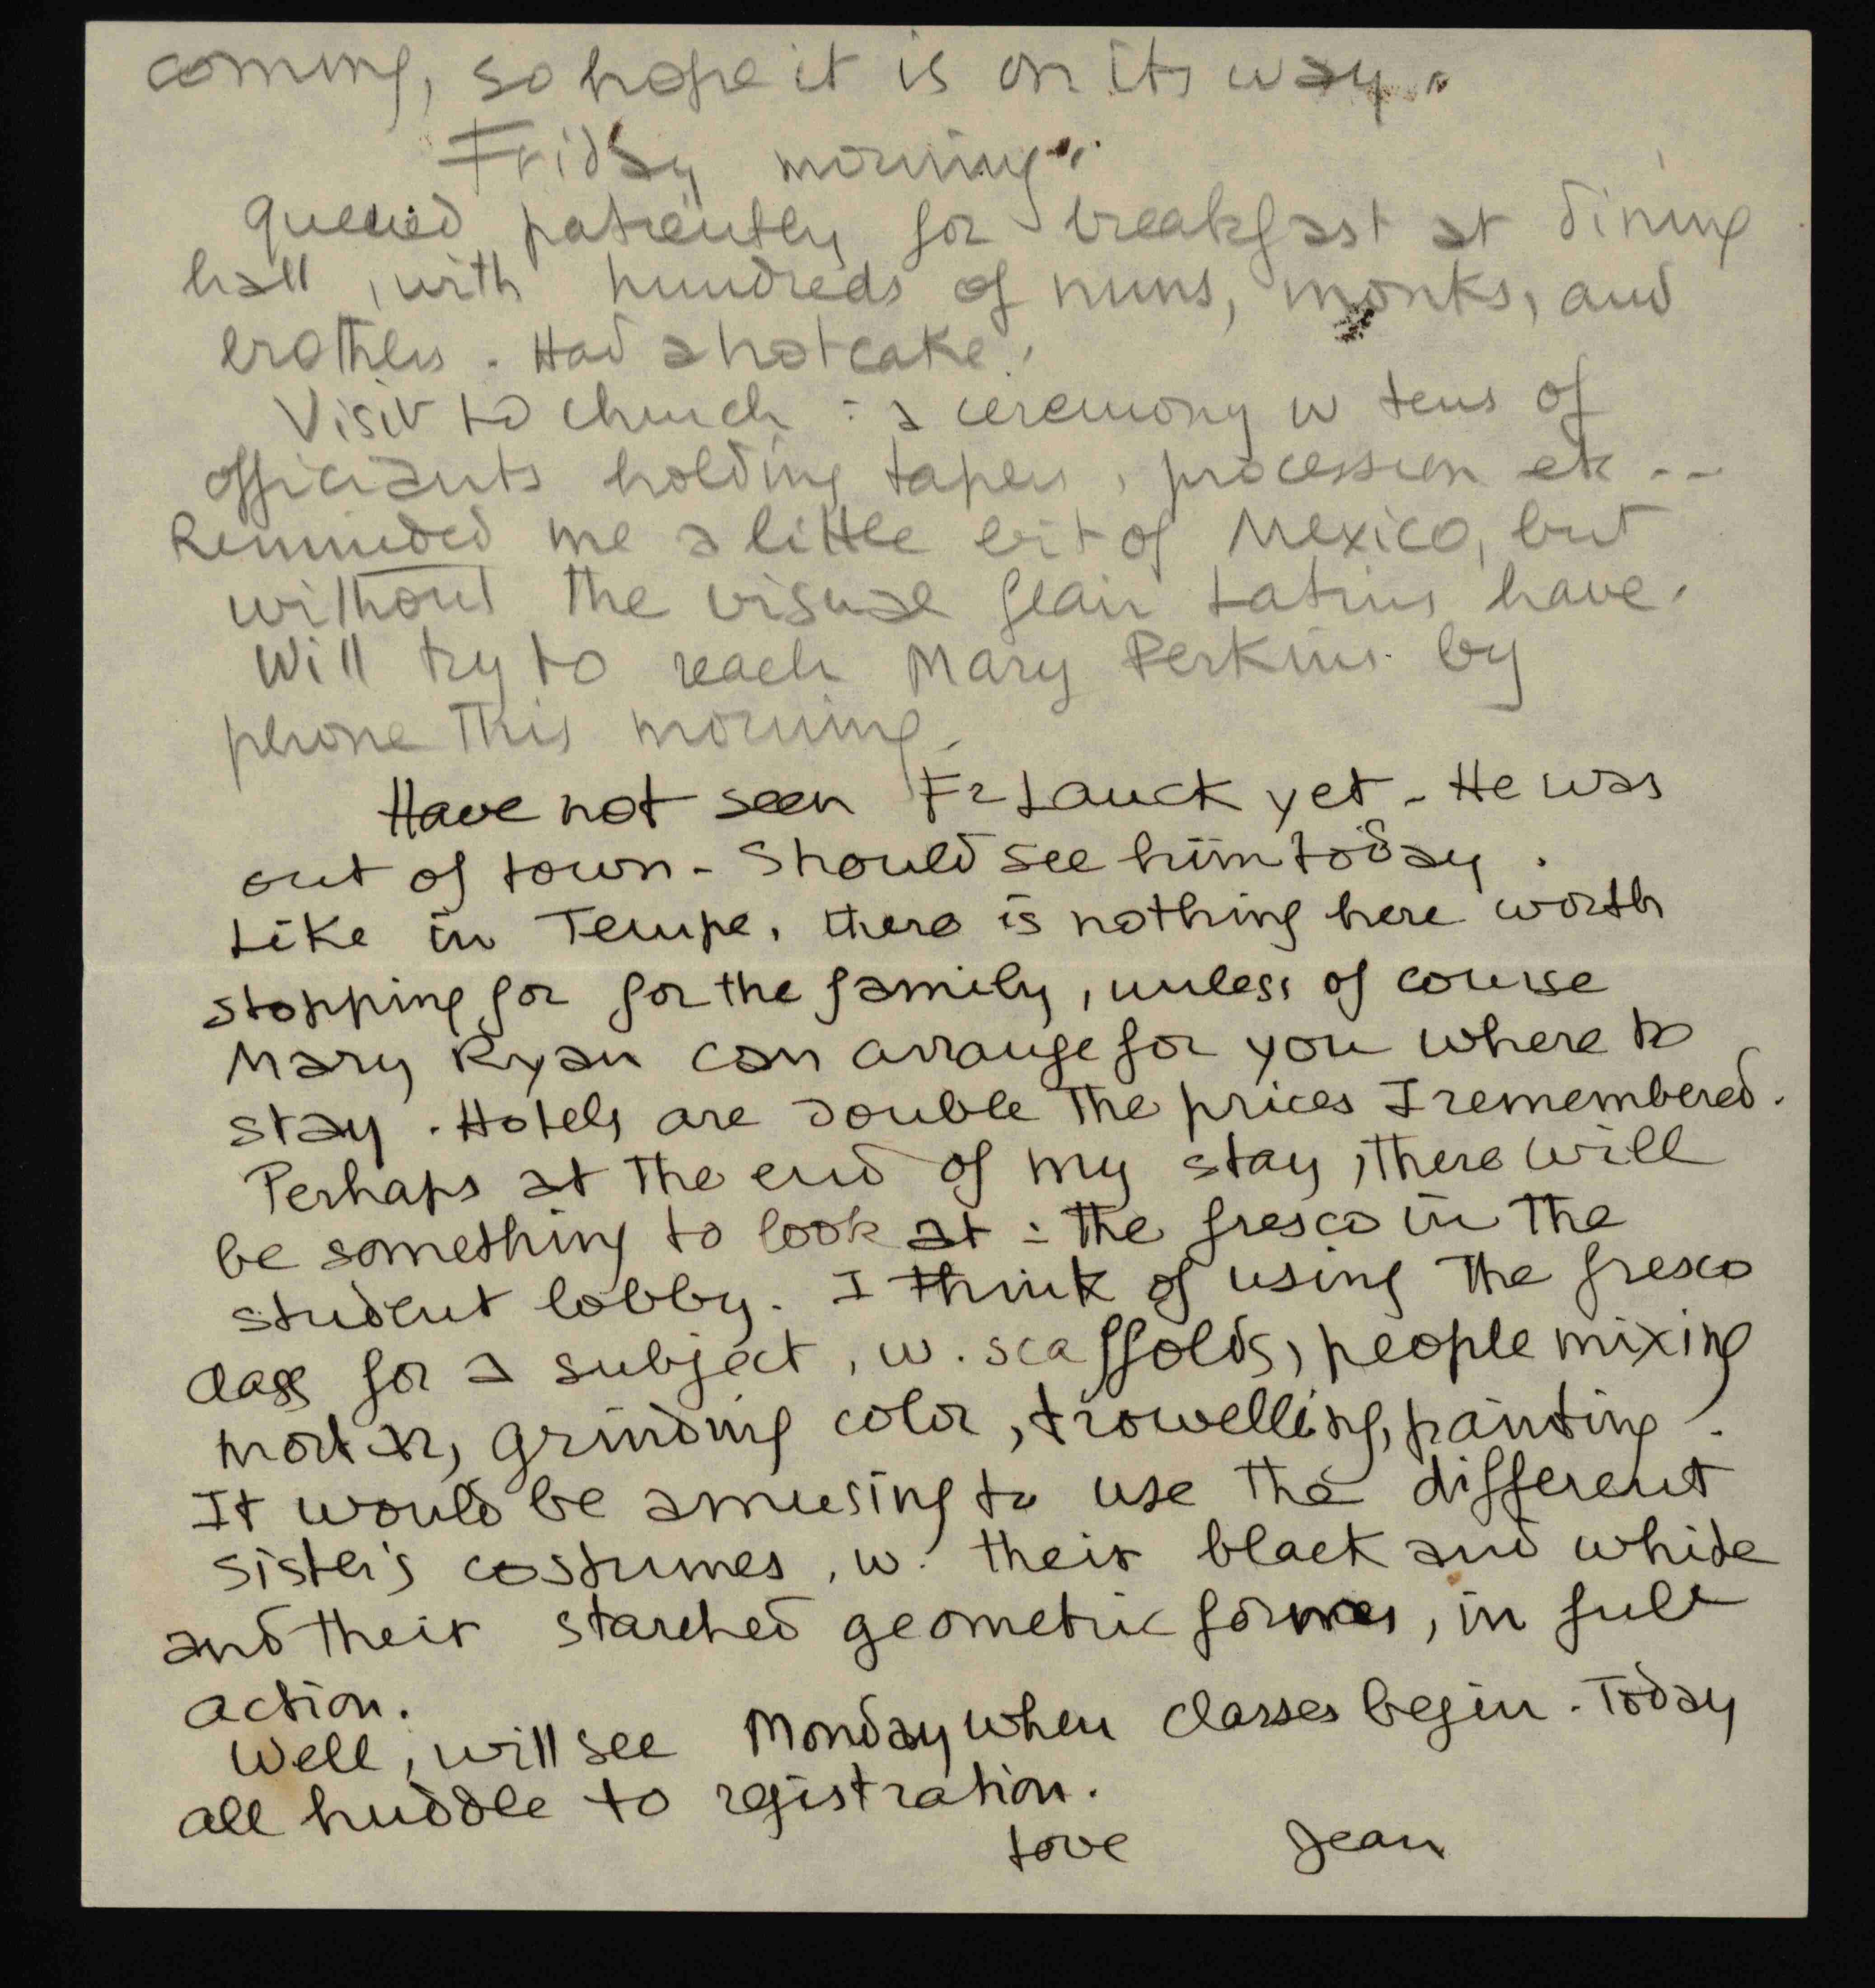 coming, so hope it is on its way.
Friday morning.
Queued patiently for breakfast at dining
hall, with hundreds of nuns, monks, and
brothers. Had a hotcake.
Visit to church : a ceremony w tens of
officiants holding tapers, procession etc --
Reminded me a little bit of Mexico, but
without the visual flair Latins have.
Will try to reach Mary Perkins by
phone this morning.
Have not seen Fr Lauck yet - He was
out of town - Should see him today.
Like in Tempe, there is nothing here worth
stopping for for the family, unless of course
Mary Ryan can arrange for you where to
stay. Hotels are double the prices I remembered.
Perhaps at the end of my stay, there will
be something to look at : the fresco in the
student lobby. I think of using the fresco
class for a subject, w. scaffolds, people mixing
mortar, grinding color, trowelling, painting.
It would be amusing to use the different
sister's costumes, w. their black and white
and their starched geometric forms, in full
action.
Well, will see Monday when classes begin. Today
all huddle to registration.
Love Jean